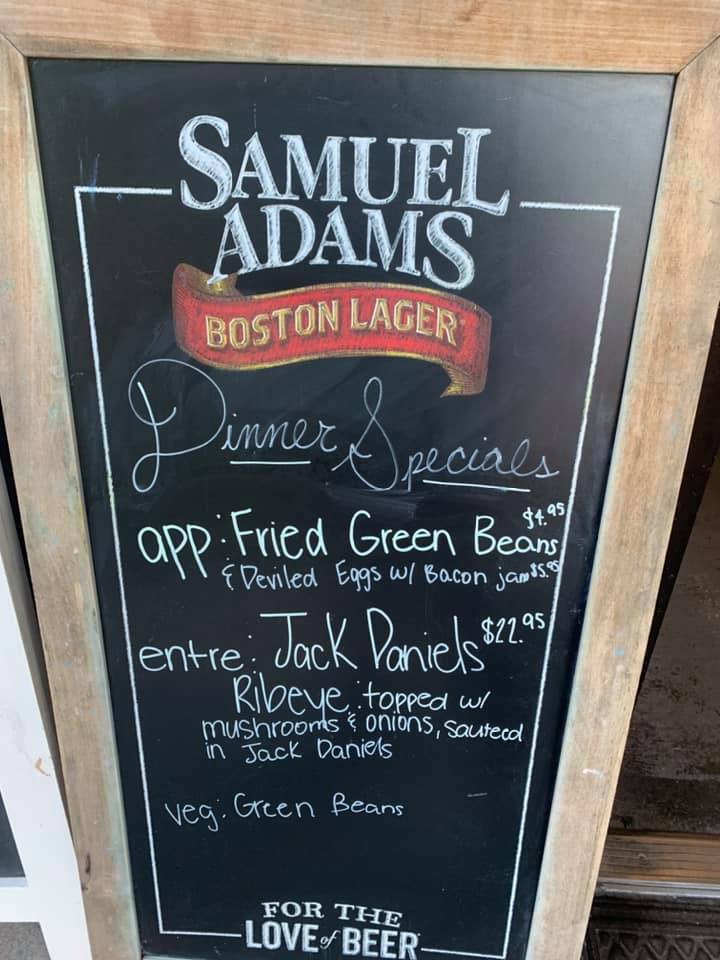 SAMUEL
ADAMS
BOSTON LAGER
Dinner Specials
app: Fried Green Beans $4.95
& Deviled Eggs w/ Bacon jam $5.95
entre: Jack Daniels $22.95
Ribeye: topped w/
mushrooms & onions, sauteed
in Jack Daniels
veg: Green Beans
FOR THE
LOVE of BEER